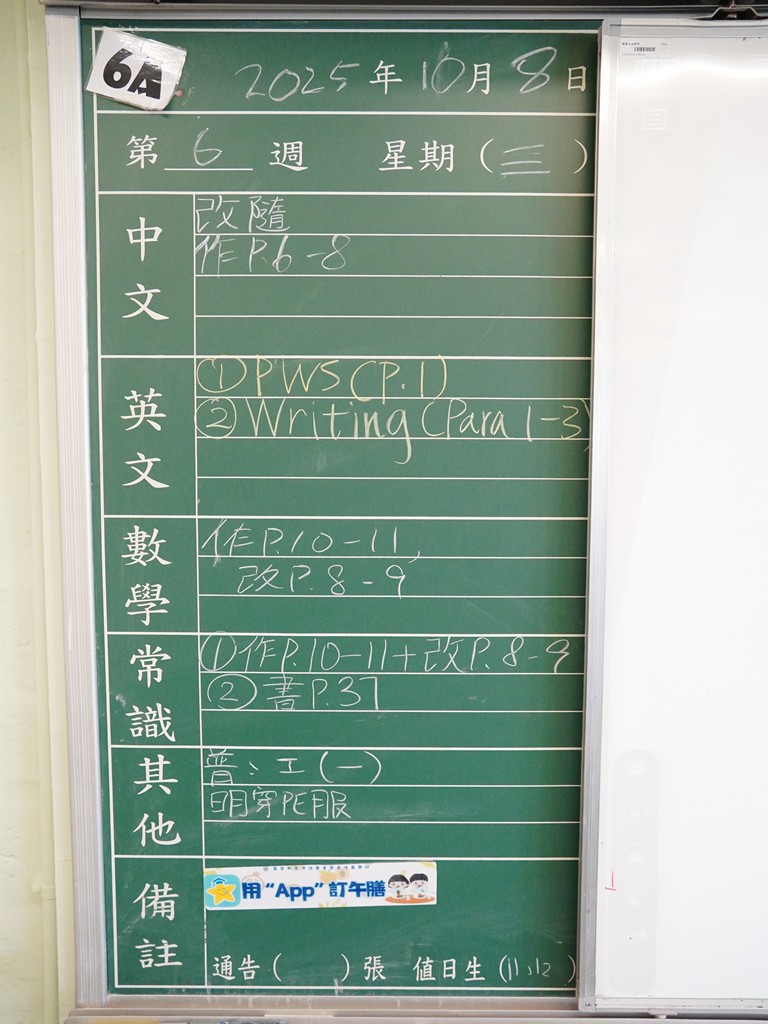 6A
2025年10月8日
第 6 週 星期(三)
中文
改隨
作P.6-8
英文
①PWS(P.1)
②Writing(Para 1-3)
數學
作P.10-11,
改P.8-9
常識
①作P.10-11+改P.8-9
②書P.37
其他
普、工(一)
明穿PE服
備註
用“App”訂午膳
通告( )張 值日生(11、12)